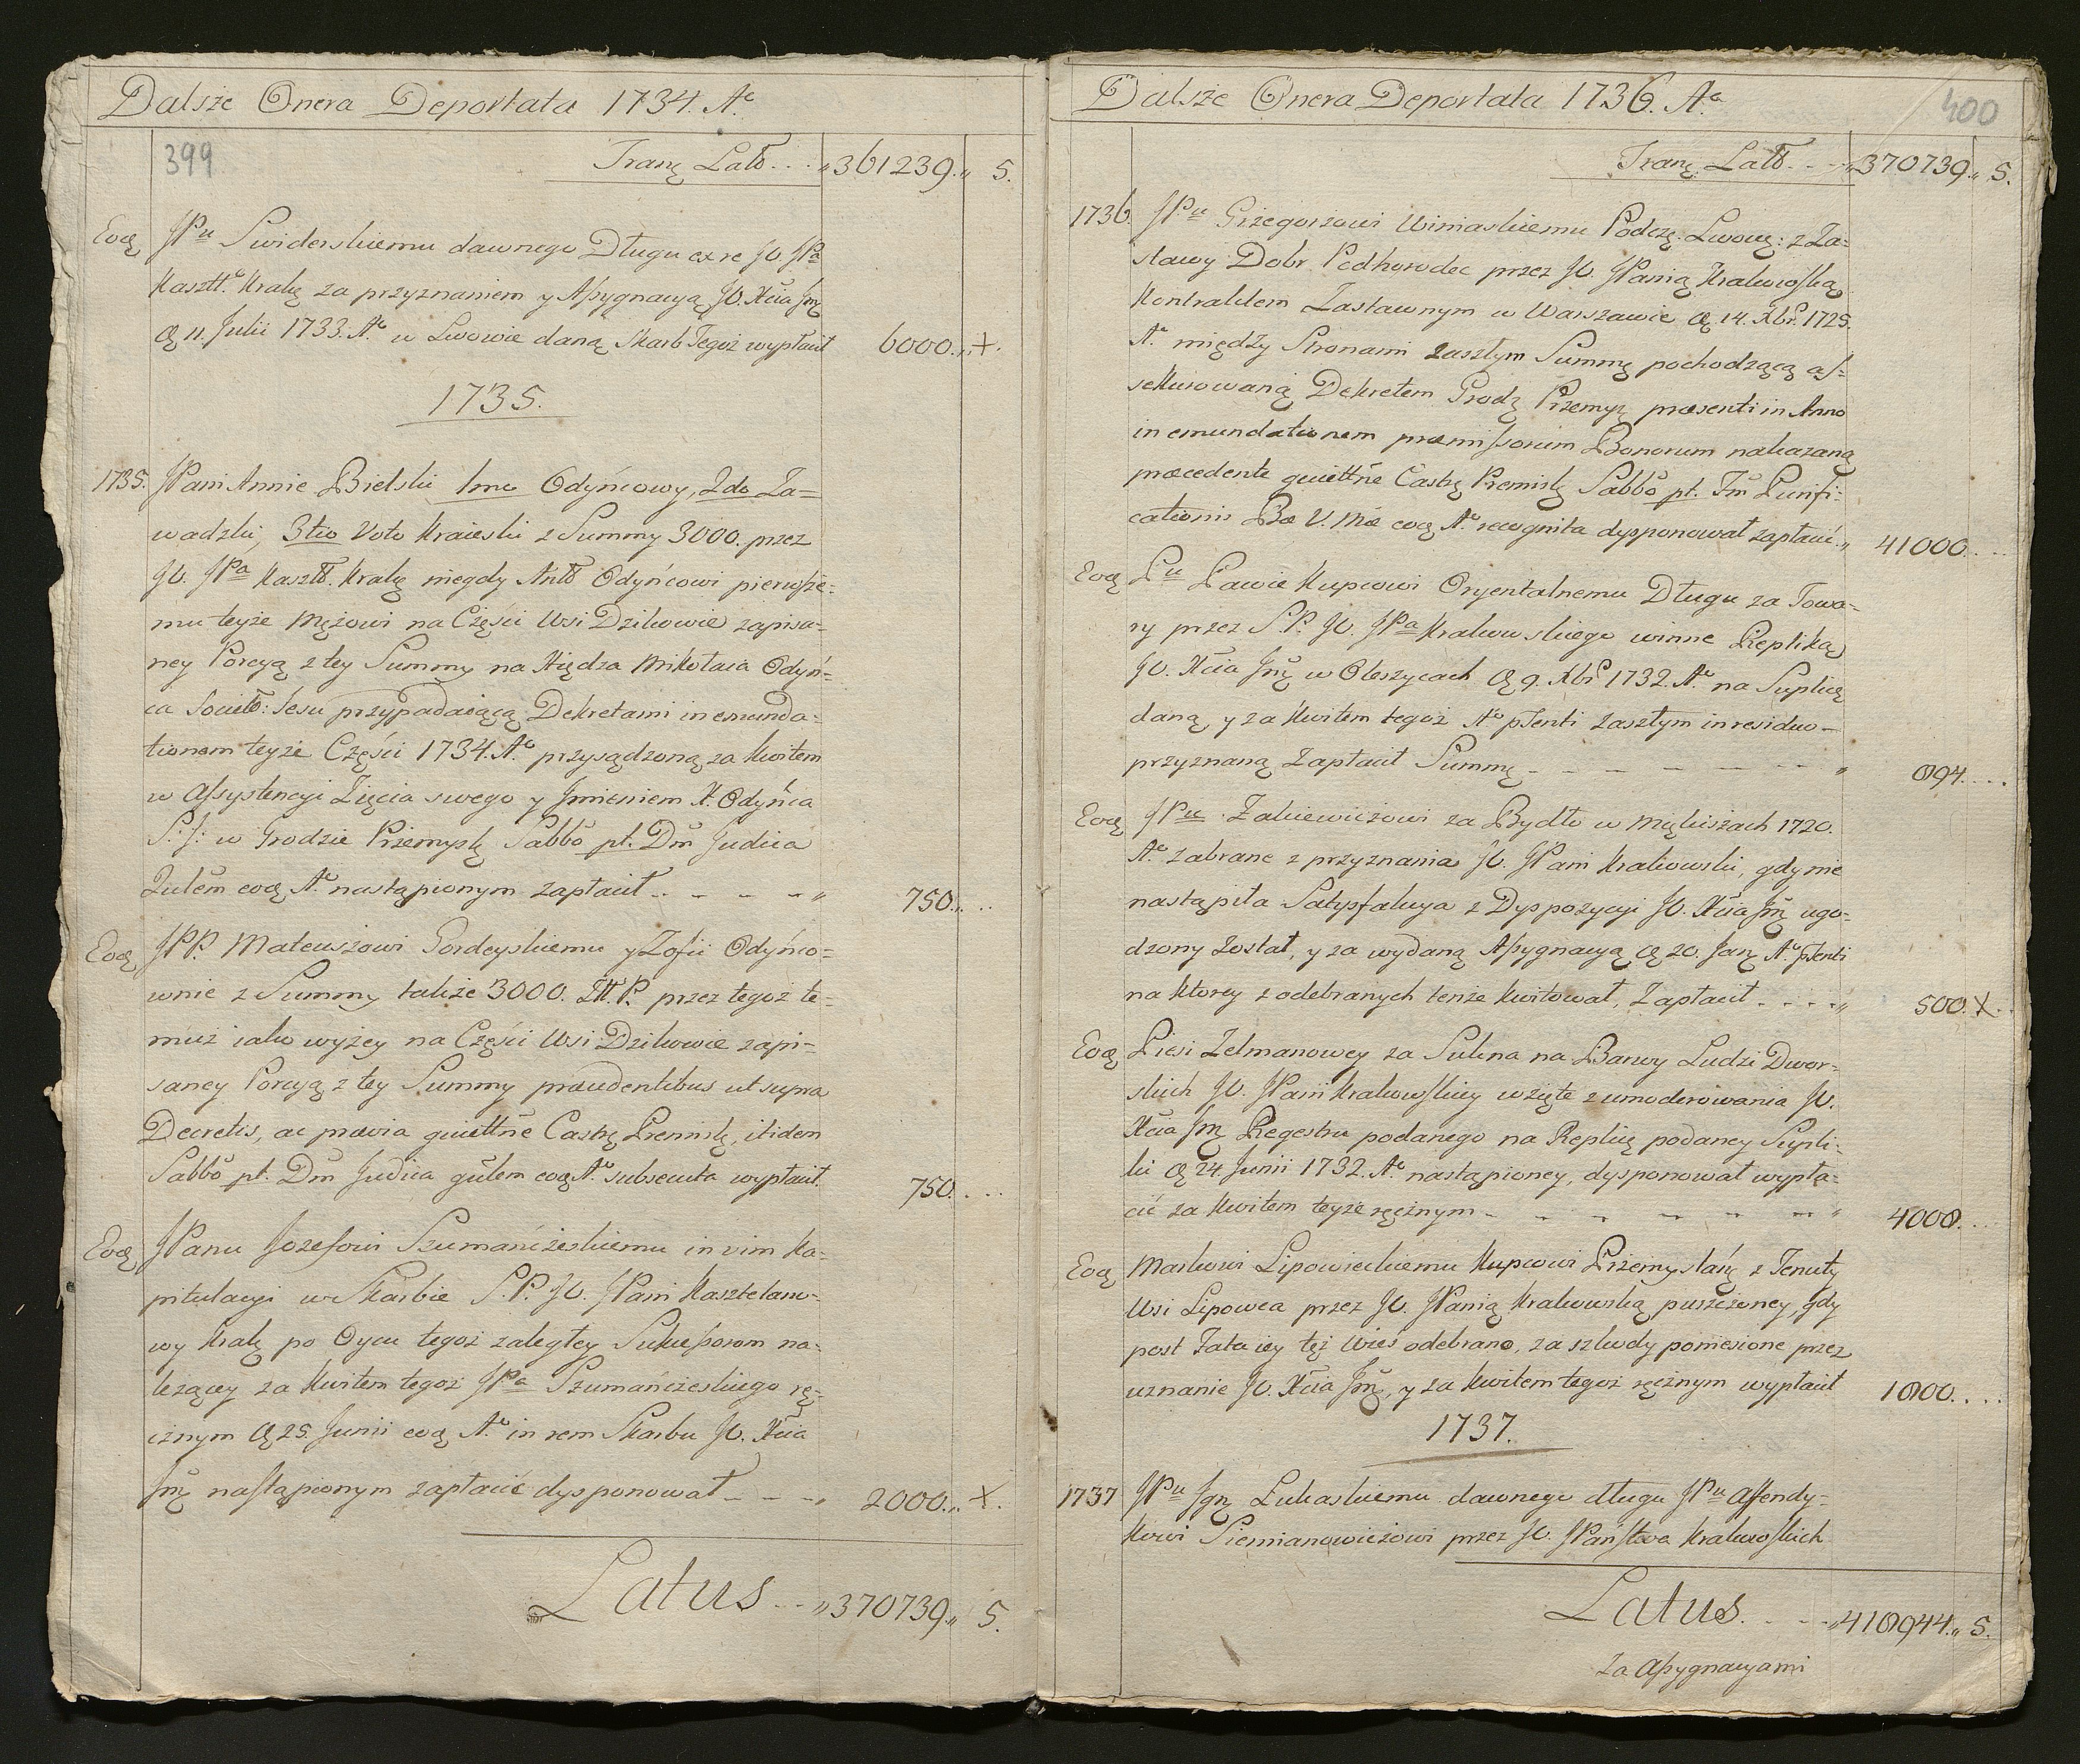 Dalsze Onera Deportata 1734. Aº
399
Tranz Latg - - - „361239.„ 5.
Eoq JPu Swiderskiemu dawnego Długu ex re JO. JPa
Kasztt. Krakę za przyznaniem y Assygnacyą JO. Xcia Jmę
dę 11. Julii 1733. Aº w Lwowie daną Skarb Tegoż wypłacił 6000.„ +.
1735.
1735. JPani Annie Bielski 1mo Odyńcowy, 2do Za=
wadzki, 3tio Voto Kraieski z Summy 3000. przez
JO. JPa Kasztt. Krakę niegdy Antt Odyńcowi pierwsze=
mu teyże Mężowi na Części Wsi Dzikowie zapisa=
ney Porcyą z tey Summy na Xiędza Mikołaia Odyń=
ca Societt: Jesu przypadaiącą Dekretami in emunda=
tionem teyże Części 1734. Aº przysądzoną za Kwitem
w Assystencyi Zięcia swego y Jmieniem X. Odyńca
S: J: w Grodzie Przemyslę Sabbo pt. Dm Judica
Qulem eoq Aº nastąpionym zapłacił - - - - „ 750. . . .
Eoq JPP. Mateuszowi Gordeyskiemu y Zofii Odyńco=
wnie z Summy także 3000. Ztt. P. przez tegoż te=
muż iako wyżey na Części Wsi Dzikowie zapi=
saney Porcyą z tey Summy præcedentibus ut supra
Decretis, ac prævia quiettne Castrę Præmislę, itidem
Sabbo pt. Dm Judica qulem eoq Aº subsecuta wypłacił. 750. . . .
Eoq JPanu Jozefowi Szumańczeskiemu in vim Ka=
pitulacyi w Skarbie S. P. JO. JPani Kasztelano=
wy Krakę po Oycu tegoż zaległey Sukcessorom na=
leżącey za Kwitem tegoż JPa Szumańczeskiego rę=
cznym dę 25. Junii eoq Aº in rem Skarbu JO. Xcia
Jmę nastąpionym zapłacić dysponował - - - „ 2000.„ +.
Latus - - „370739.„ 5.
Dalsze Onera Deportata 1736. Aº
400
Tranz Latt - - „370739.„ 5.
1736. JPu Grzegorzowi Winiaskiemu Podczę: Lwowę: z Za=
stawy Dobr Podhorodec przez JO. JPanią Krakowską
Kontraktem Zastawnym w Warszawie dę 14. Xbr. 1725.
Aº między Stronami zaszłym Summę pochodzącą as=
sekurowaną Dekretem Grodz Przemyz præsenti in Anno
in emundationem præmissorum Bonorum nakazaną
præcedente quiettne Castrę Premislę Sabbo pt. Fm Purifi=
cationis Bæ V. Mæ eoq Aº recognita dysponował zapłacić „ 41000. . . .
Eoq Pu Pawie Kupcowi Oryentalnemu Długu za Towa=
ry przez S. P. JO. JPa Krakowskiego winne Repliką
JO. Xcia Jmę w Oleszycach dę 9. Xbr 1732. Aº na Suplicę
daną, y za Kwitem tegoż Aº pſenti zaszłym in residuo=
przyznaną Zapłacił Summę - - - - - - - „ 894. . . .
Eoq JPu Zakiewiczowi za Bydło w Mękiszach 1720.
Aº zabrane z przyznania JO. JPani Krakowski, gdy nie
nastąpiła Satysfakcya z Dyspozycyi JO. Xcia Jmę ugo=
dzony został, y za wydaną Assygnacyą dę 20. Janę Aº pſenti
na ktorey z odebranych tenże kwitował, Zapłacił - - - - „ 500. X.
Eoq Piesi Zelmanowey za Sukna na Barwy Ludzi Dwor=
skich JO. JPani Krakowskiey wzięte z umoderowania JO.
Xcia Jmę Regestru podanego na Replicę podaney Supli=
ki dę 24 Junii 1732. Aº nastąpioney, dysponował wypła=
cić za Kwitem teyże ręcznym - - - - - - „ 4000. . . .
Eoq Markowi Lipowieckiemu Kupcowi Przemyslańę z Tenuty
Wsi Lipowca przez JO. JPanią Krakowską puszczoney, gdy
post Fata iey tęż Wieś odebrano, za szkody poniesione przez
uznanie JO. Xcia Jmę, y za Kwitem tegoż ręcznym wypłacił 1800. . . .
1737.
1737 JPu Jgnę Lukaskiemu dawnego długu JPu Assendy=
kowi Siemianowiczowi przez JO. JPaństwa Krakowskich
Latus. - - - „418944.„ 5.
za Assygnacyami